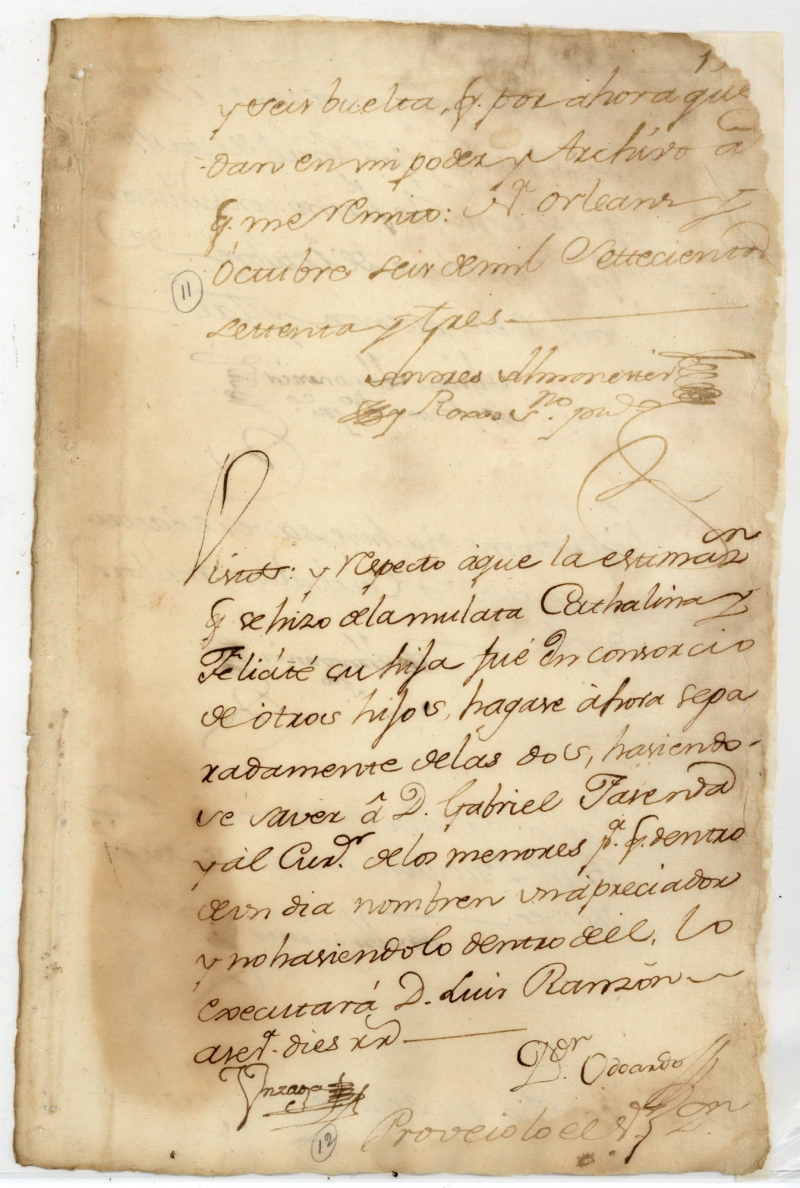 y seis buelta, q. por ahora que
dan en mi poder y Archivo â
q. me remito: Na. Orleans y
Octubre seis de mil Settecientos
settenta y tres
11
Andres Almonester
y Roxas Sno. pu
Vistos: y respecto áque la estimaon
q se hizo de la mulata Cathalina y
Felicité su hija fué en consorcio
de otros hijos, hagase àhora sepa
radamente de las dos, hasiendo-
se saver â D. Gabriel Fasenda
y al Curdr. de los menores pa. q. dentro
de un dia nombren un apreciador
y no hasiendolo dentro de él, lo
executará D. Luis Ranzón
aser. dies rrs
Unzaga
Dor. Odoardo
12
Proveiolo el S